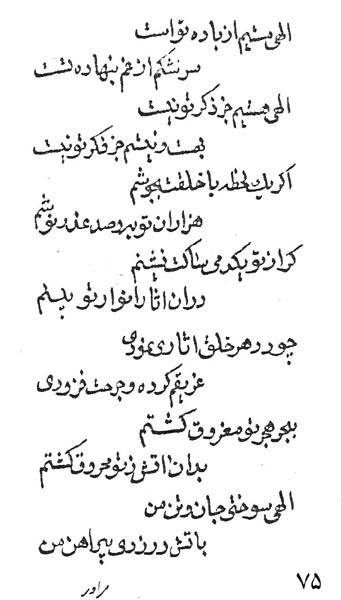 الهی مستیم از باده تو است
سرشکم از غم بنهاده تست
الهی هستیم جز ذکر تو نیست
بهست و نیستم جز فکر تو نیست
اکر یك لحظه با خلقت بجوشم
هزاران توبه و صد عذر نوشم
کر از تو یکدمی ساکت نشینم
دران انا را نوار تو بینم
چو در هر خلق اثاری نمودی
غریقم کرده و جرمت فزودی
ببحر هجر تو مغروق کشتم
بدان اتش ز تو محروق کشتم
الهی سوختی جان و تن من
باتش در زدی پیراهن من
۷۵
مراور